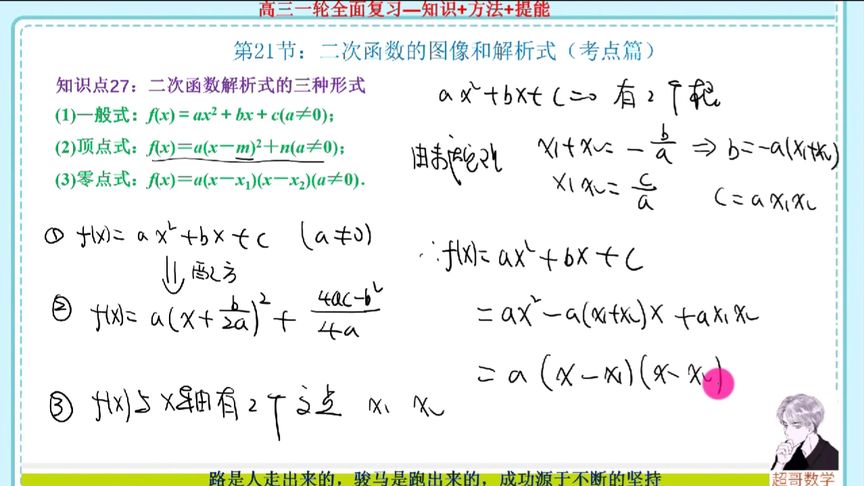 高三一轮全面复习—知识+方法+提能
第21节：二次函数的图像和解析式（考点篇）
知识点27：二次函数解析式的三种形式
(1)一般式：f(x)=ax²+bx+c(a≠0)；
(2)顶点式：f(x)=a(x-m)²+n(a≠0)；
(3)零点式：f(x)=a(x-x₁)(x-x₂)(a≠0).
① f(x)= ax²+bx+c (a≠0)
⇓ 配方
② f(x)= a(x+b/2a)²+ (4ac-b²)/4a
③ f(x)与x轴有2个交点 x₁ x₂
ax²+bx+c=0 有2个根
由韦达定理 x₁+x₂=-b/a ⇒ b=-a(x₁+x₂)
x₁x₂=c/a c=ax₁x₂
∴f(x)=ax²+bx+c
=ax²-a(x₁+x₂)x+ax₁x₂
=a(x-x₁)(x-x₂)
超哥数学
路是人走出来的，骏马是跑出来的，成功源于不断的坚持